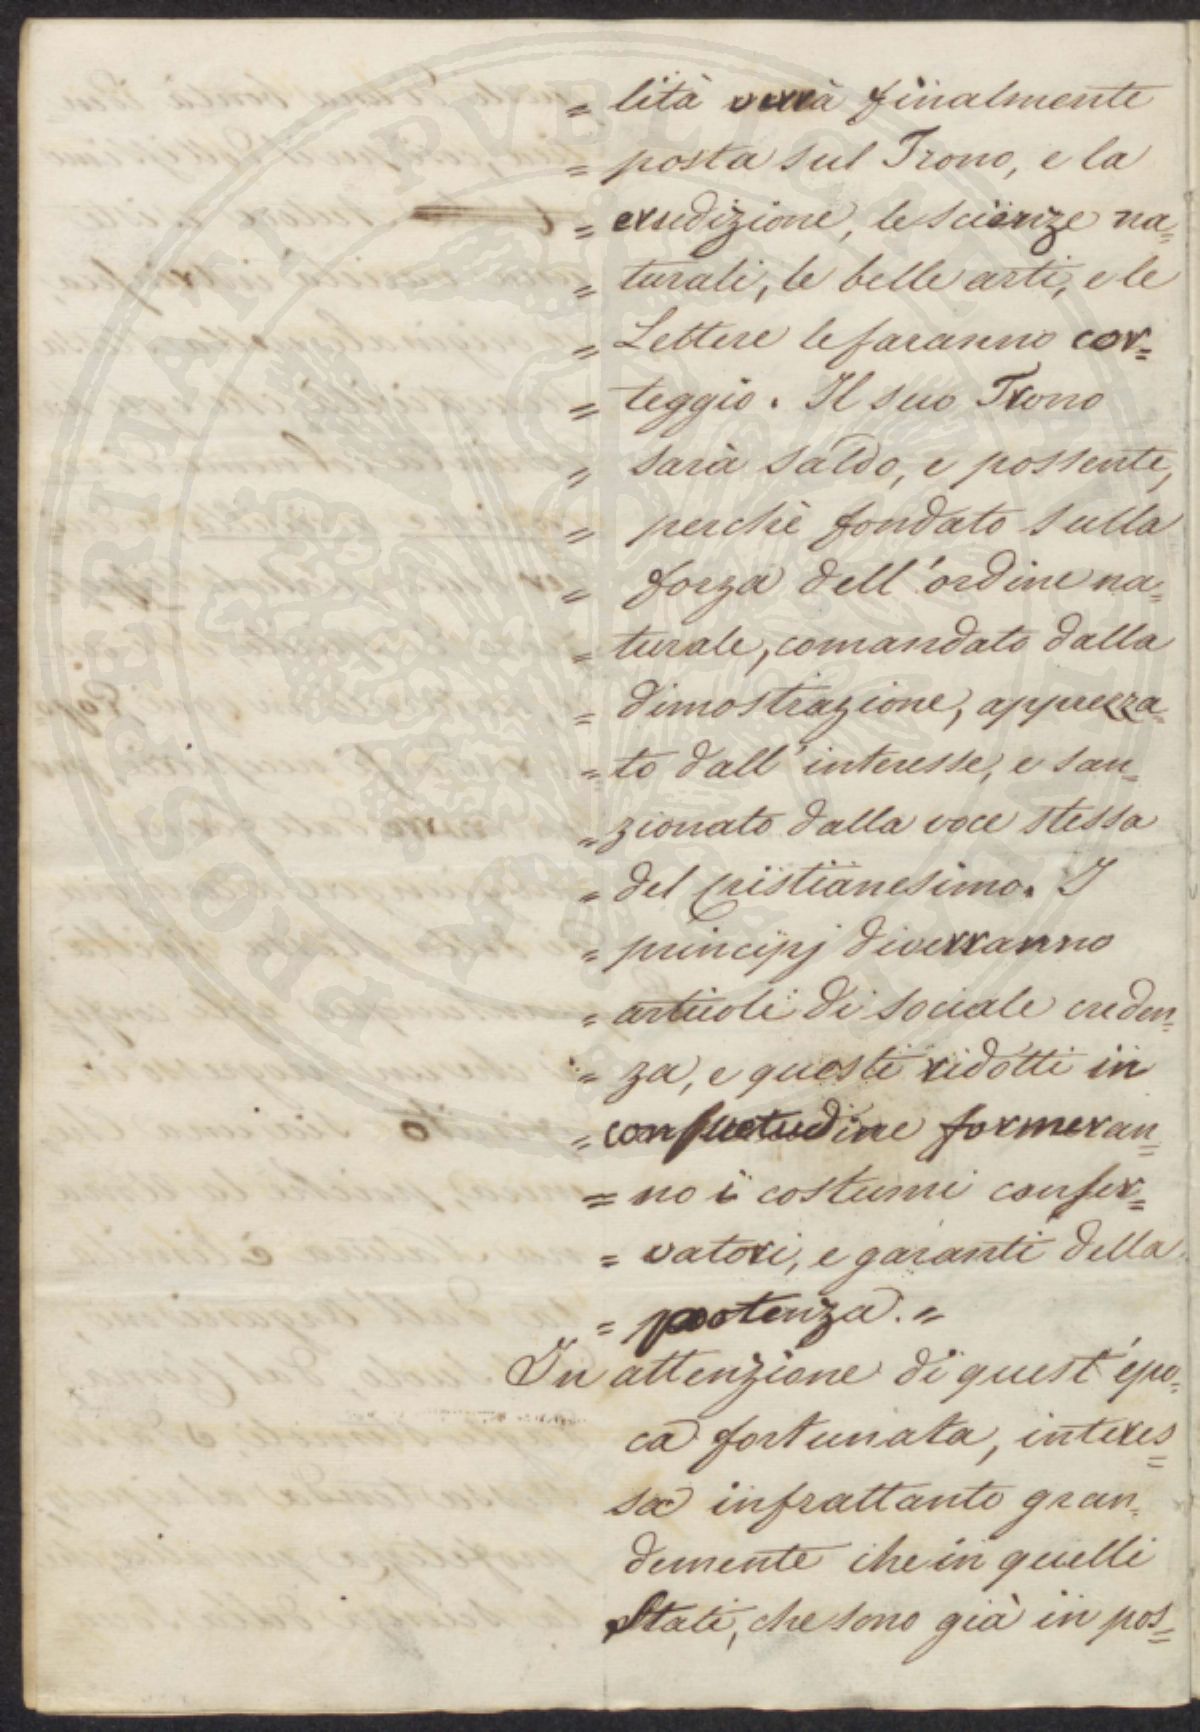 = lità verrà finalmente
= posta sul Trono, e la
= erudizione, le scienze na=
= turali, le belle arti, e le
= Lettere le faranno cor=
= teggio. Il suo Trono
= sarà saldo, e possente,
= perchè fondato sulla
= forza dell'ordine na=
= turale, comandato dalla
= dimostrazione, apprezza=
= to dall'interesse, e san=
= zionato dalla voce stessa
= del cristianesimo. I
= principj diverranno
= articoli di sociale creden=
= za, e questi ridotti in
= consuetudine formeran=
= no i costumi conser=
= vatori, e garanti della
= potenza. =
In attenzione di quest'epo=
ca fortunata, interes=
sa infrattanto gran=
demente che in quelli
Stati, che sono già in pos=